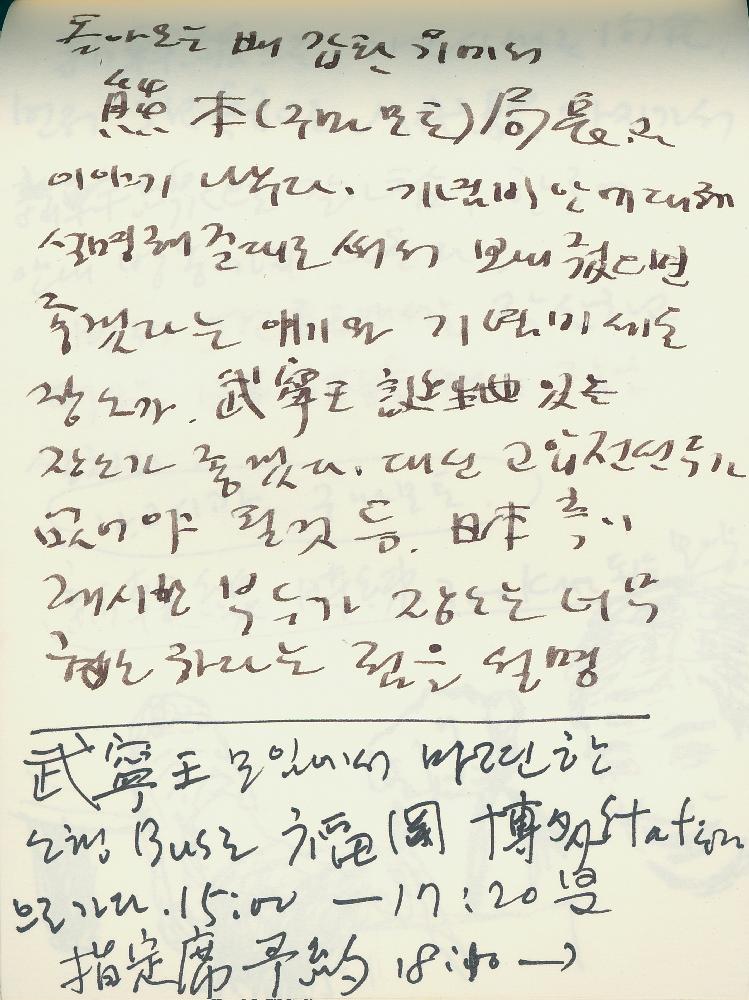 돌아오는 배 갑판 위에서
熊本(구마모토)局長과
이야기 나누다. 기념비 안에 대해
설명해준대로 써서 보내줬으면
좋겠다는 얘기와 기념비 세울
장소가. 武寧王 誕生地 있는
장소가 좋겠다. 대신 고압전선주가
없어야 될것 등. 日本 측이
제시한 부두가 장소는 너무
협소하다는 점을 설명
武寧王 모임에서 마련한
소형 Bus로 福岡 博多 Station
으로 가다. 15:00 — 17:20
指定席 予約 18:40 →